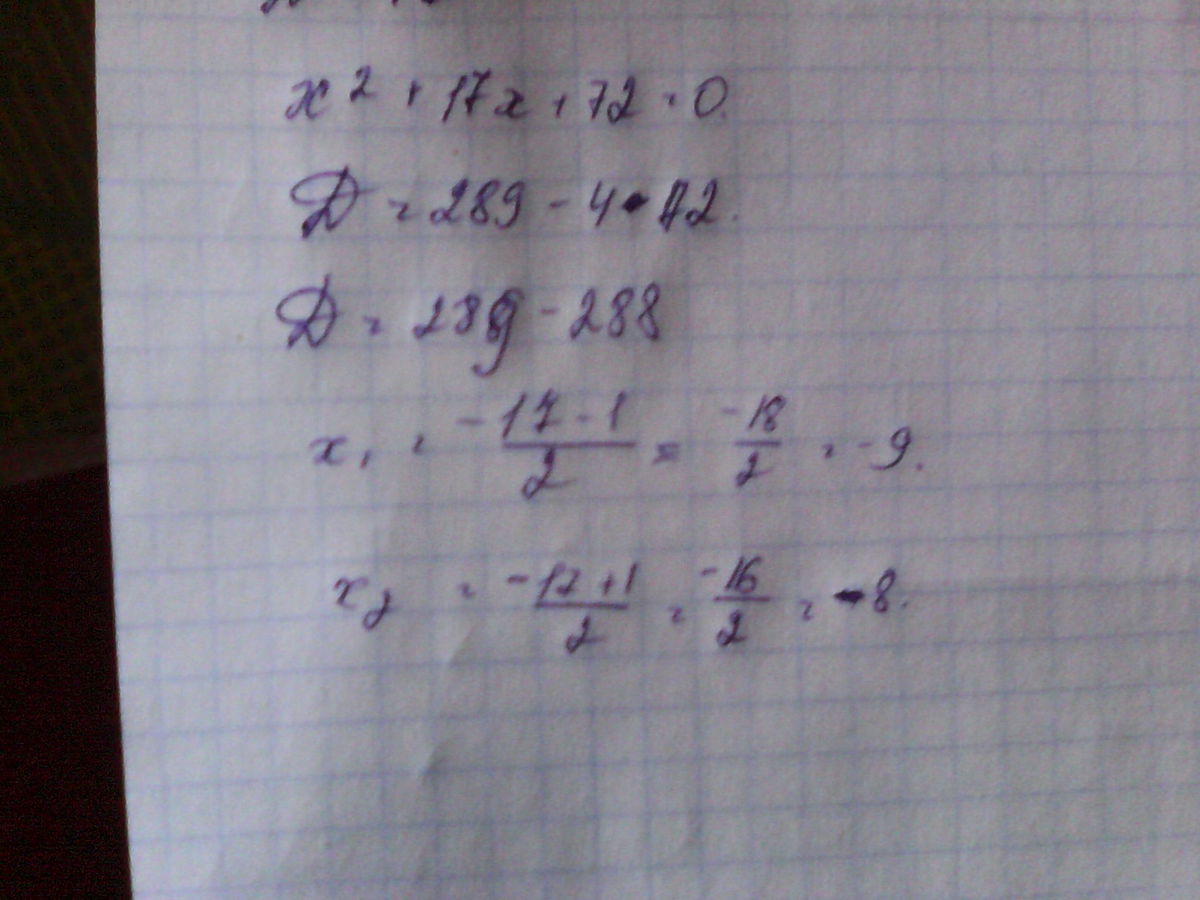 x² + 17x + 72 = 0.
D = 289 - 4 • 72.
D = 289 - 288
x₁ = -17 - 1 / 2 = -18 / 2 = -9.
x₂ = -17 + 1 / 2 = -16 / 2 = -8.